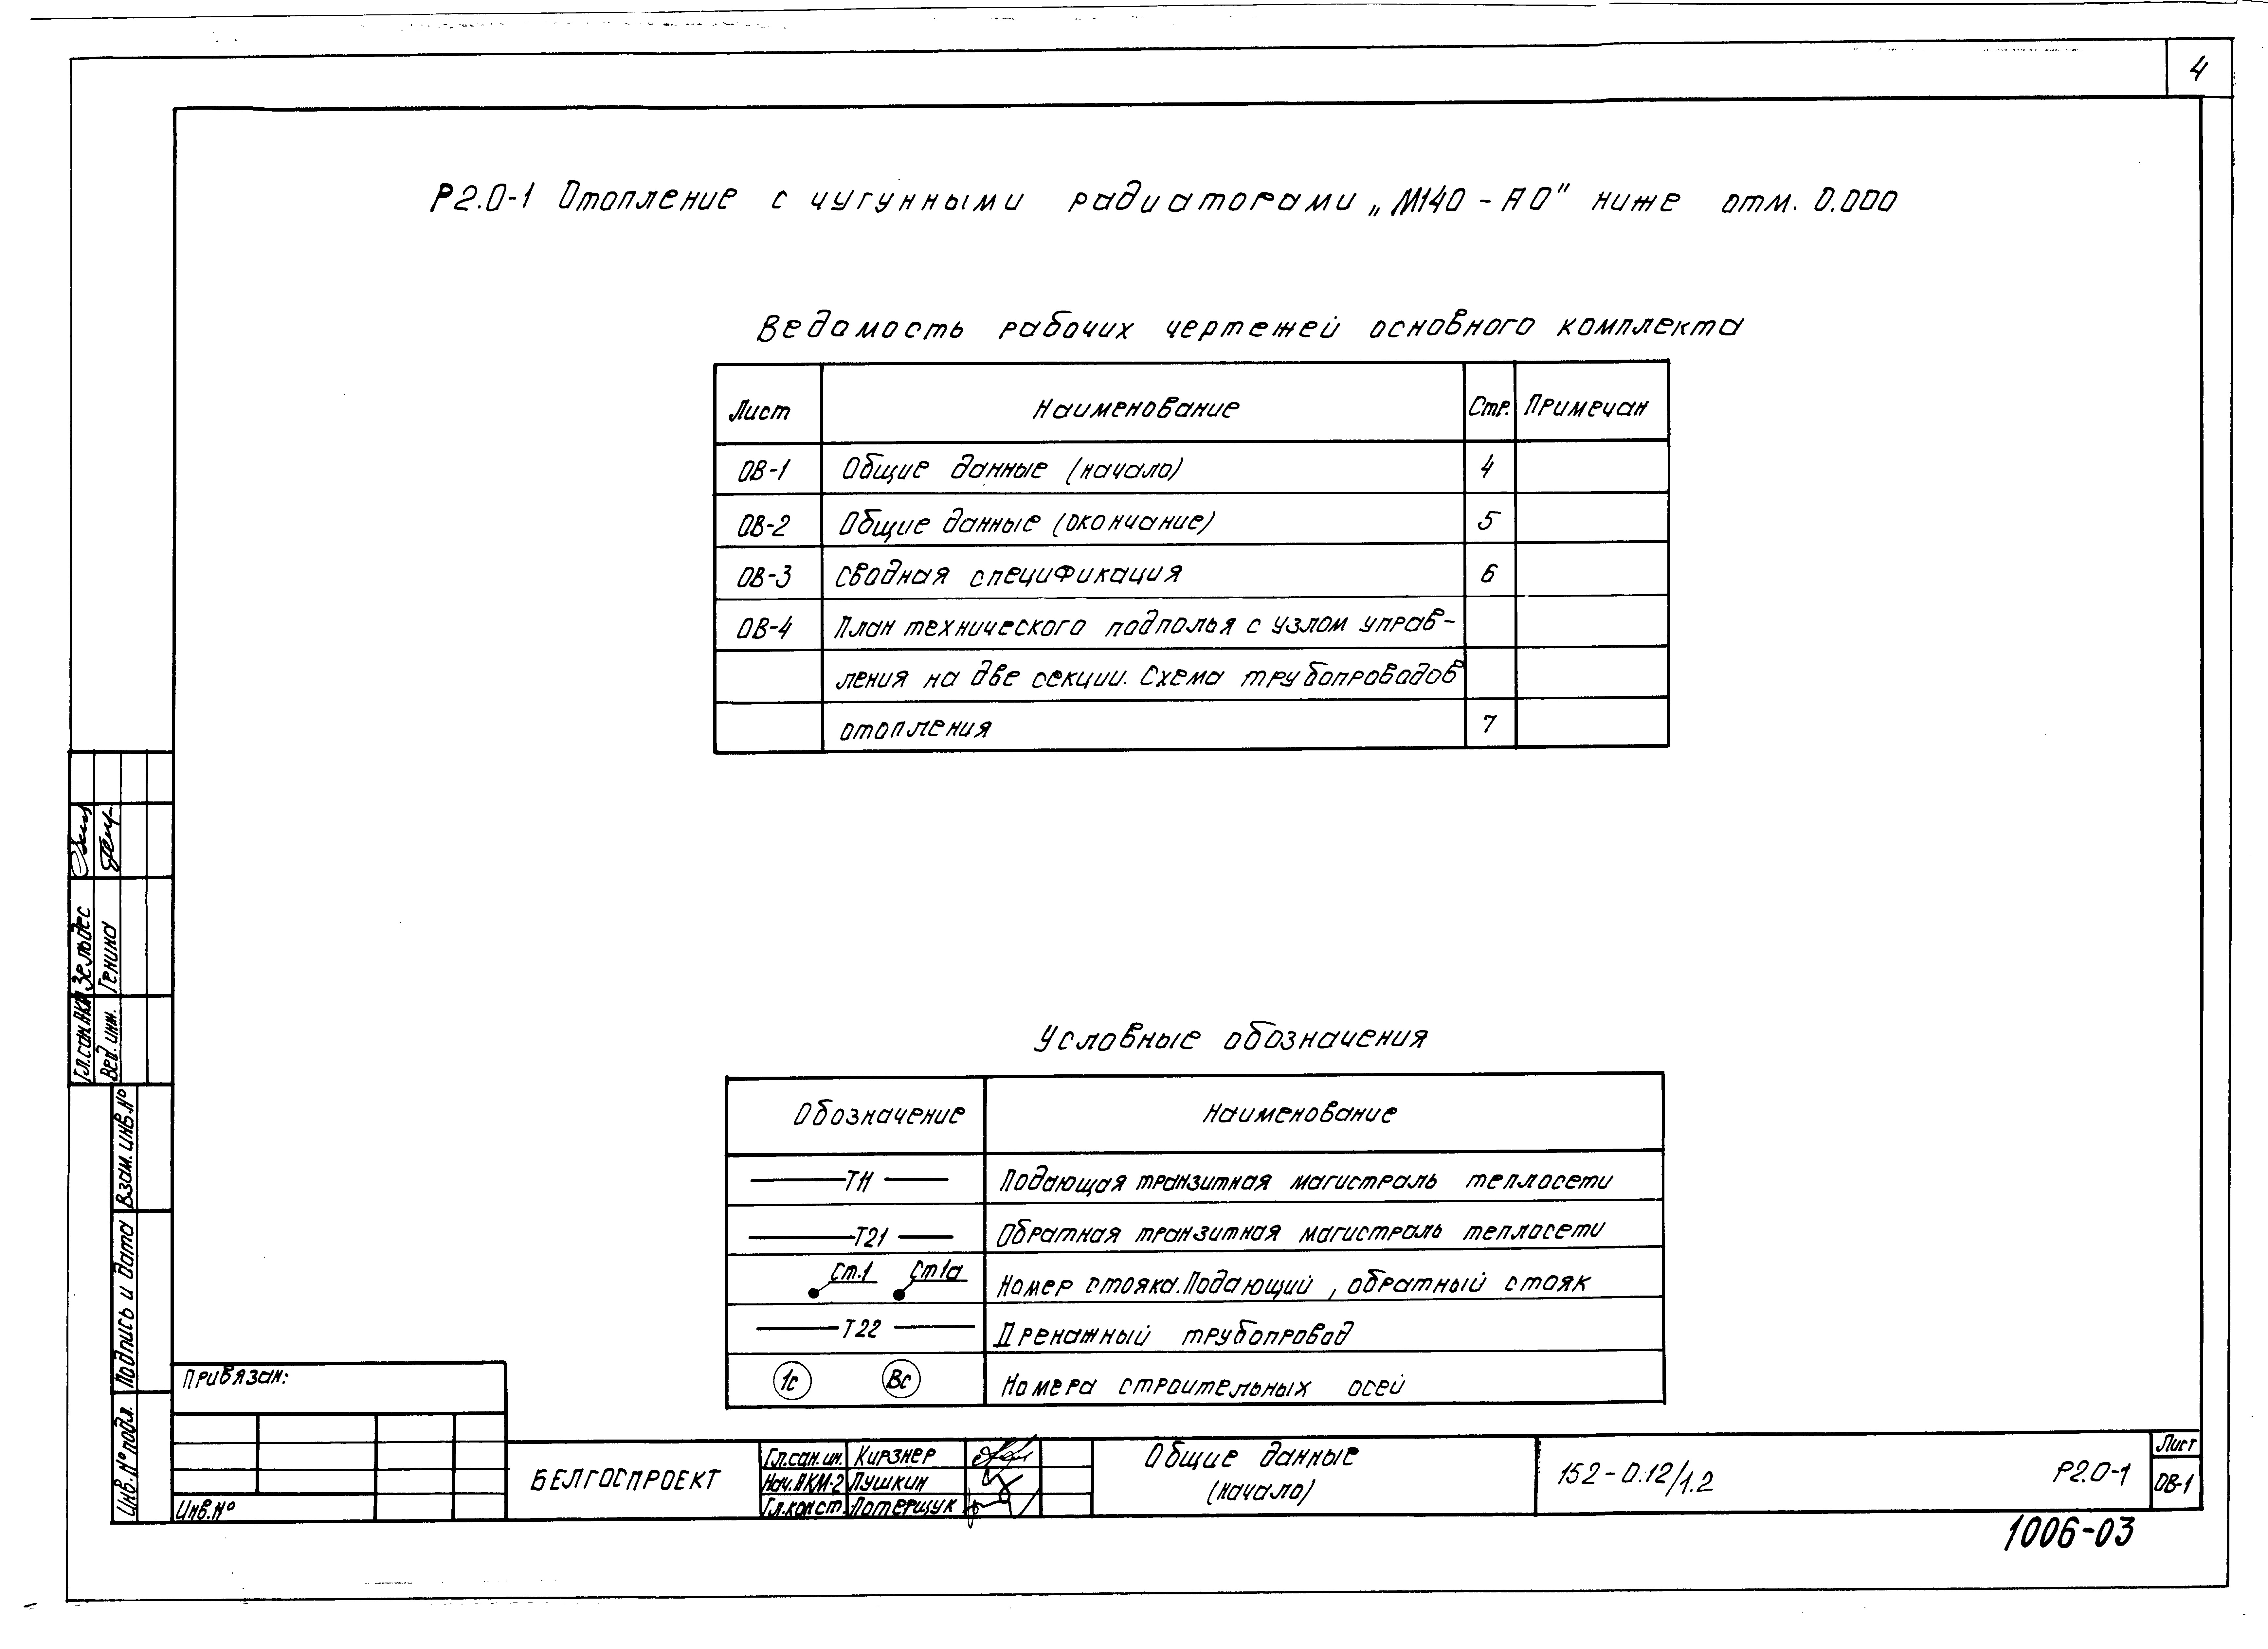 4
Р2.0-1 Отопление с чугунными радиаторами „М140-АО" ниже отм. 0.000
Ведомость рабочих чертежей основного комплекта
Лист Наименование Стр. Примечан
ОВ-1 Общие данные (начало) 4
ОВ-2 Общие данные (окончание) 5
ОВ-3 Сводная спецификация 6
ОВ-4 План технического подполья с узлом управ-
ления на две секции. Схема трубопроводов
отопления 7
Условные обозначения
Обозначение Наименование
Т11 Подающая транзитная магистраль теплосети
Т21 Обратная транзитная магистраль теплосети
Ст.1 Ст1а Номер стояка. Подающий, обратный стояк
Т22 Дренажный трубопровод
1с Вс Номера строительных осей
Гл.сан.АКМ Зельдес
Вед. инж. Генина
Взам. инв. №
Подпись и дата
Инв. № подл.
Привязан:
Инв.№
БЕЛГОСПРОЕКТ
Гл.сан.ин. Кирзнер
Нач.АКМ-2 Пушкин
Гл.конст. Потерщук
Общие данные
(начало)
152-0.12/1.2
Р2.0-1
Лист
ОВ-1
1006-03